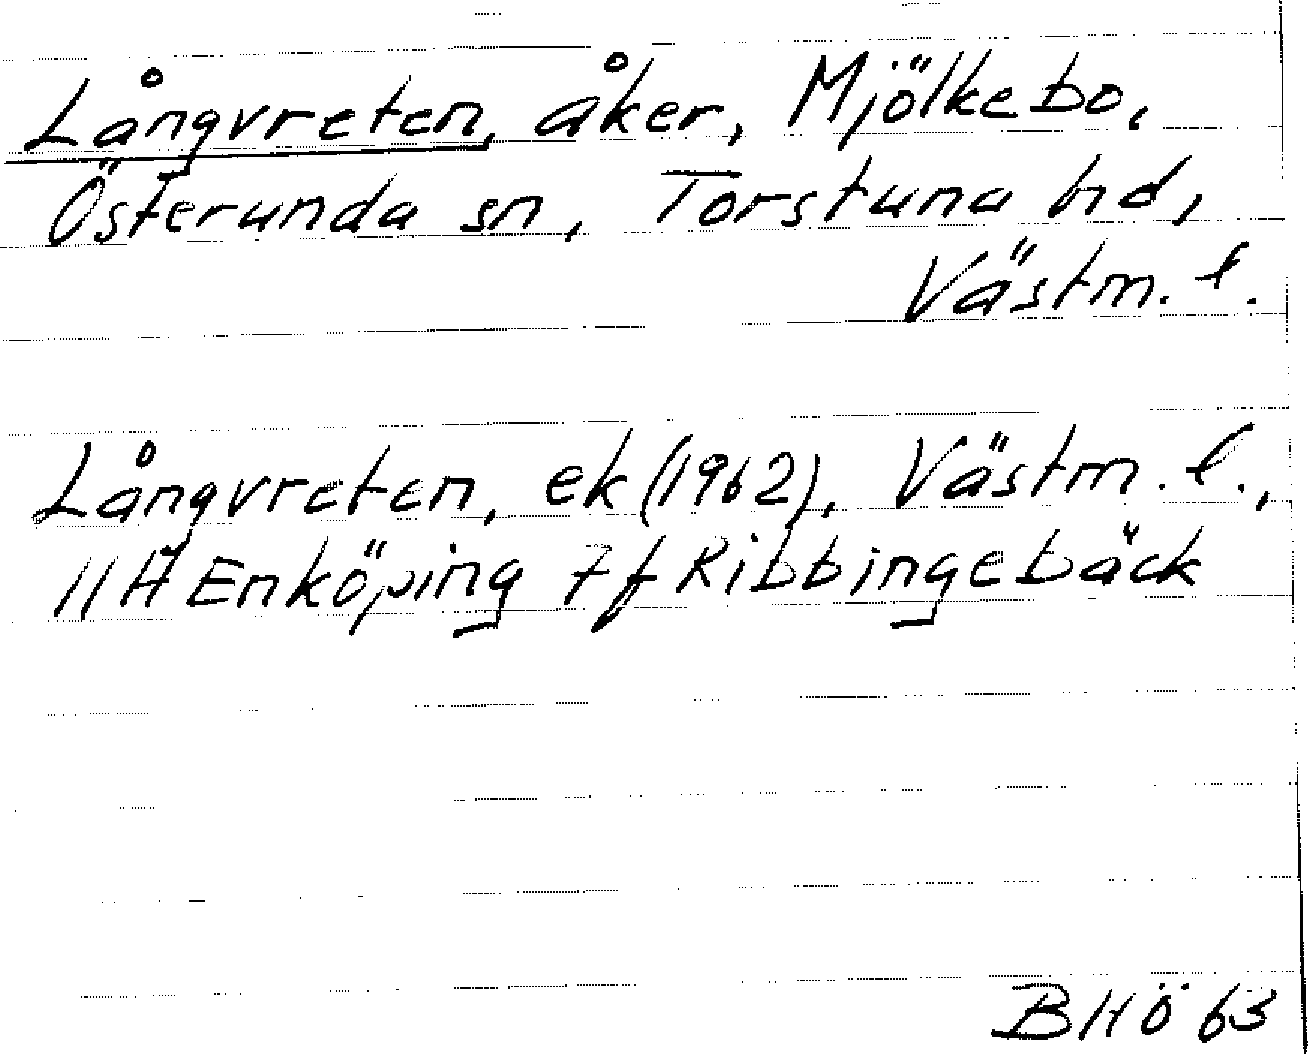 Långvreten, åker, Mjölkebo,
Österunda sn, Torstuna hd,
Västm. l.
Långvreten, ek (1962), Västm. l.,
11H Enköping 7f Ribbingebäck
BHÖ 63